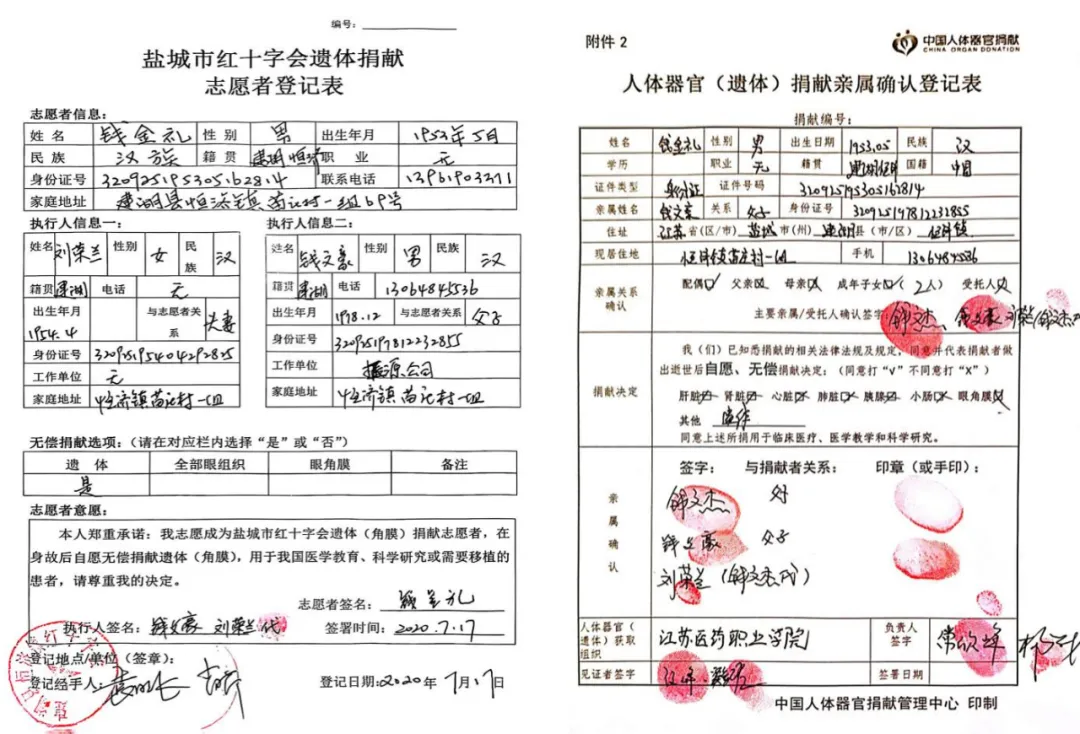 编号：
盐城市红十字会遗体捐献
志愿者登记表
志愿者信息：
姓 名 钱金礼 性 别 男 出生年月 1953年5月
民 族 汉族 籍 贯 建湖恒济 职 业 无
身份证号 320925195305162814 联系电话 13961903371
家庭地址 建湖县恒济镇苗庄村一组69号
执行人信息一：
姓名 刘荣兰 性别 女 民族 汉
籍贯 建湖 电话 无
出生年月 1954.4 与志愿者关系 夫妻
身份证号
工作单位 无
家庭地址 恒济镇苗庄村一组
执行人信息二：
姓名 钱文豪 性别 男 民族 汉
籍贯 建湖 电话 13064845536
出生年月 1978.12 与志愿者关系 父子
身份证号 320925197812232855
工作单位 公司
家庭地址 恒济镇苗庄村一组
无偿捐献选项：（请在对应栏内选择“是”或“否”）
遗 体 全部眼组织 眼角膜 备注
是
志愿者意愿：
本人郑重承诺：我志愿成为盐城市红十字会遗体（角膜）捐献志愿者，在
身故后自愿无偿捐献遗体（角膜），用于我国医学教育、科学研究或需要移植的
患者，请尊重我的决定。
志愿者签名： 钱金礼
执行人签名： 钱文豪 刘荣兰 代 签署时间： 2020.7.17
登记地点/单位（签章）：
登记经手人： 登记日期：2020年7月17日
附件 2
中国人体器官捐献
CHINA ORGAN DONATION
人体器官（遗体）捐献亲属确认登记表
捐献编号：
姓名 钱金礼 性别 男 出生日期 1953.05 民族 汉
学历 职业 无 籍贯 建湖恒济 国籍 中国
证件类型 身份证 证件号码 320925195305162814
亲属姓名 钱文豪 关系 父子 身份证号 320925197812232855
住址 江苏省（区/市） 盐城市（州） 建湖县（市/区） 恒济镇
现居住地 恒济镇苗庄村一组 手机 13064845536
亲属关系确认 配偶☑ 父亲☒ 母亲☒ 成年子女☑（2人） 受托人☒
主要亲属/受托人确认签字 钱文杰 钱文豪 刘荣兰（钱文杰代）
捐献决定
我（们）已知悉捐献的相关法律法规及规定，同意并代表捐献者做
出逝世后自愿、无偿捐献决定：（同意打“√”不同意打“×”）
肝脏☒ 肾脏☒ 心脏☒ 肺脏☒ 胰腺☒ 小肠☒ 眼角膜☒
其他 遗体
同意上述所捐用于临床医疗、医学教学和科学研究。
亲属确认
签字： 与捐献者关系： 印章（或手印）：
钱文杰 父子
钱文豪 父子
刘荣兰（钱文杰代）
人体器官（遗体）获取组织 江苏医药职业学院 负责人签字
见证者签字 签署日期
中国人体器官捐献管理中心 印制